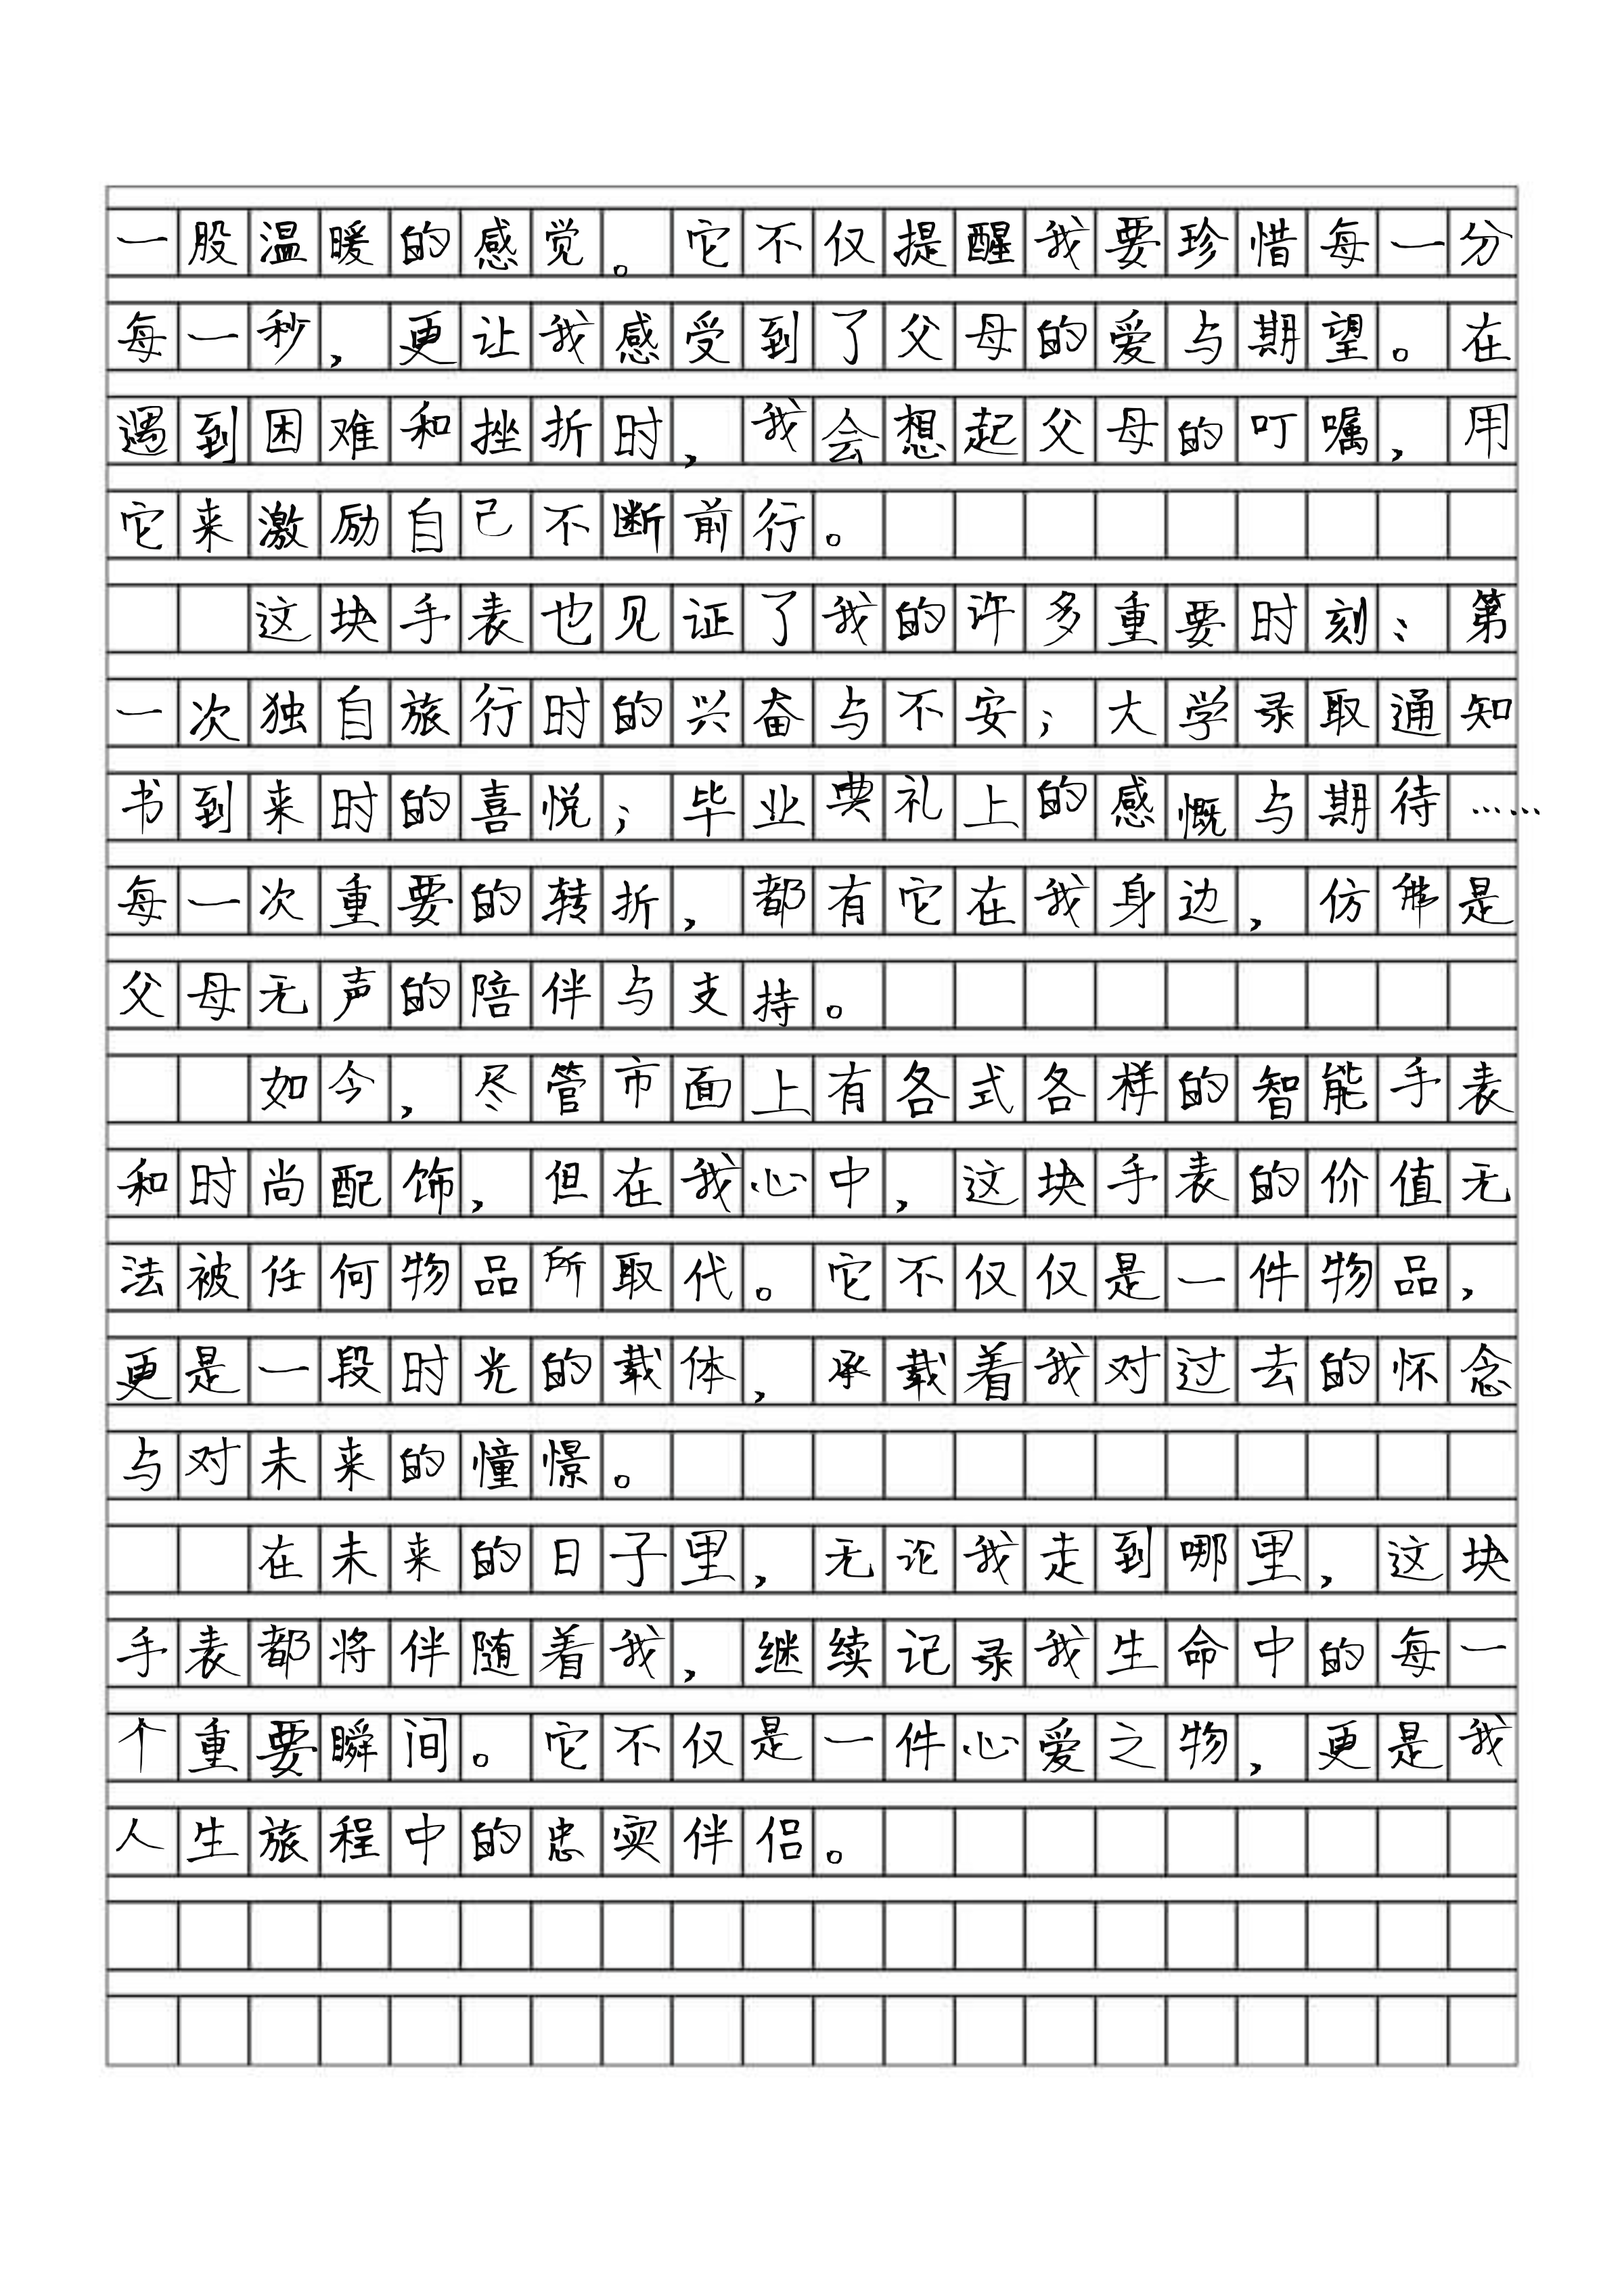 一股温暖的感觉。它不仅提醒我要珍惜每一分
每一秒，更让我感受到了父母的爱与期望。在
遇到困难和挫折时，我会想起父母的叮嘱，用
它来激励自己不断前行。
这块手表也见证了我的许多重要时刻：第
一次独自旅行时的兴奋与不安；大学录取通知
书到来时的喜悦；毕业典礼上的感慨与期待……
每一次重要的转折，都有它在我身边，仿佛是
父母无声的陪伴与支持。
如今，尽管市面上有各式各样的智能手表
和时尚配饰，但在我心中，这块手表的价值无
法被任何物品所取代。它不仅仅是一件物品，
更是一段时光的载体，承载着我对过去的怀念
与对未来的憧憬。
在未来的日子里，无论我走到哪里，这块
手表都将伴随着我，继续记录我生命中的每一
个重要瞬间。它不仅是一件心爱之物，更是我
人生旅程中的忠实伴侣。